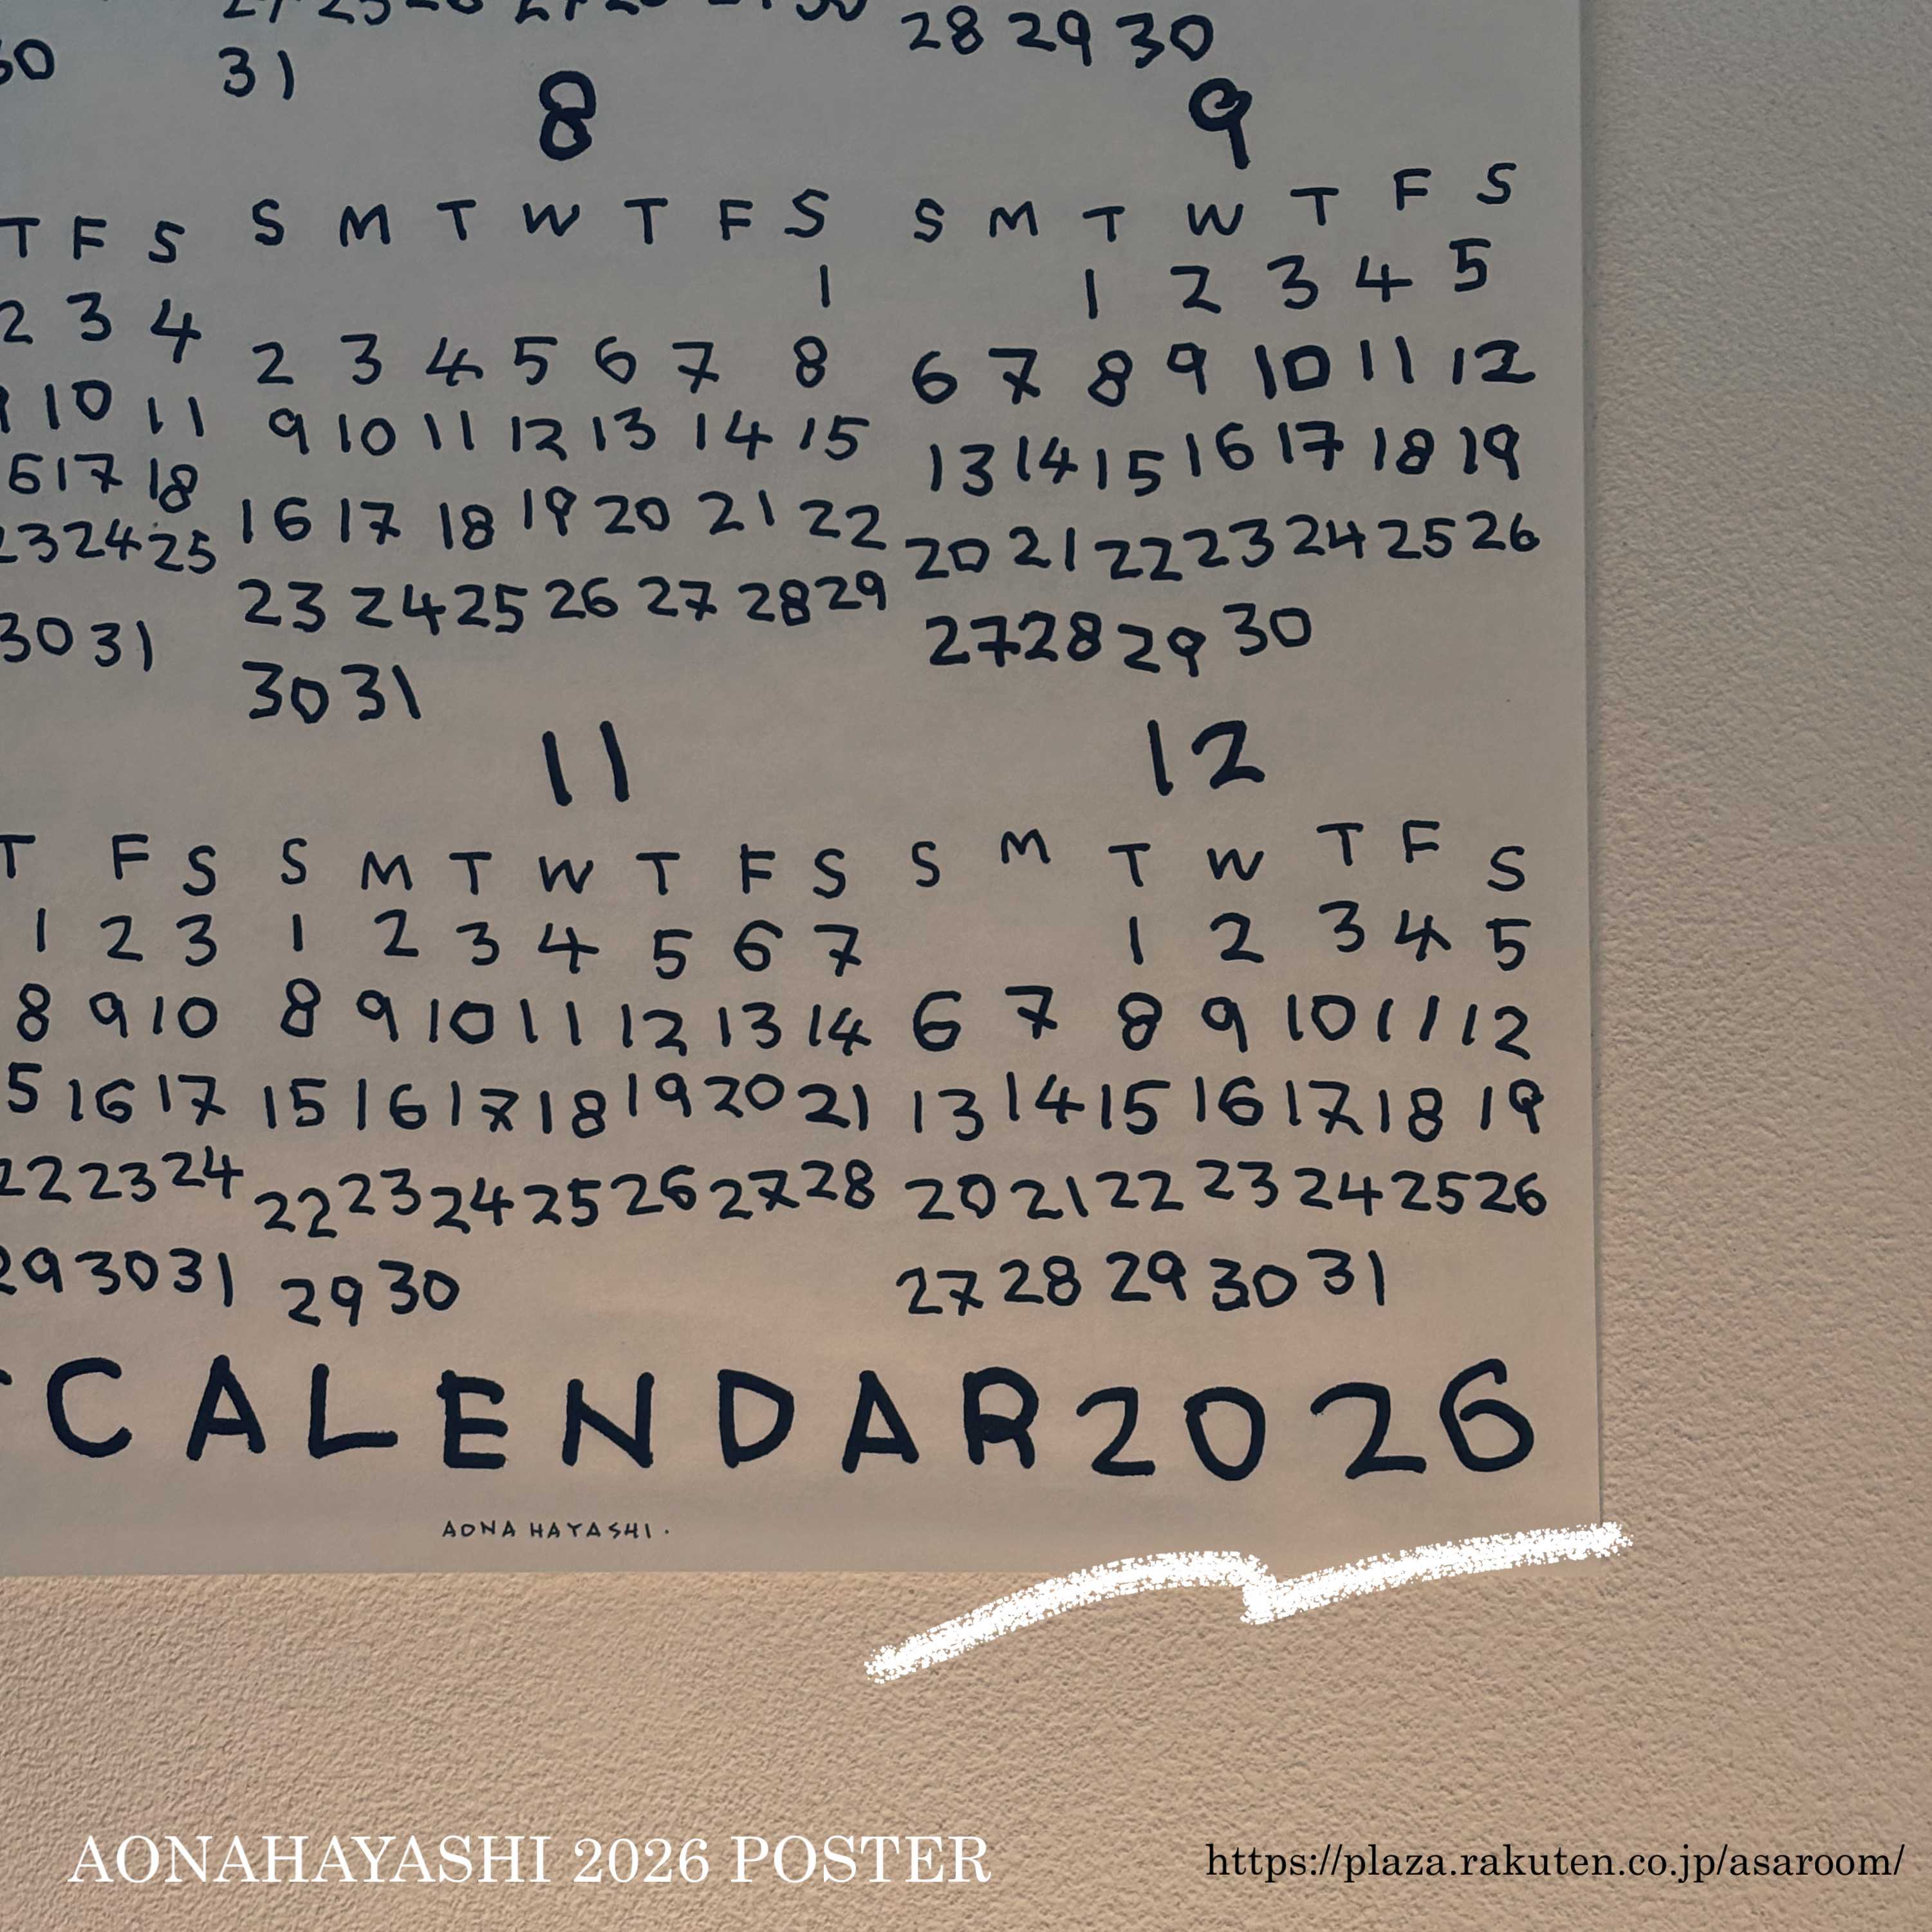 28 29 30
31
8 9
T F S S M T W T F S S M T W T F S
2 3 4 1 1 2 3 4 5
10 11 2 3 4 5 6 7 8 6 7 8 9 10 11 12
17 18 9 10 11 12 13 14 15 13 14 15 16 17 18 19
23 24 25 16 17 18 19 20 21 22 20 21 22 23 24 25 26
30 31 23 24 25 26 27 28 29 27 28 29 30
30 31
11 12
T F S S M T W T F S S M T W T F S
1 2 3 1 2 3 4 5 6 7 1 2 3 4 5
8 9 10 8 9 10 11 12 13 14 6 7 8 9 10 11 12
16 17 15 16 17 18 19 20 21 13 14 15 16 17 18 19
22 23 24 22 23 24 25 26 27 28 20 21 22 23 24 25 26
29 30 31 29 30 27 28 29 30 31
CALENDAR 2026
AONA HAYASHI.
AONAHAYASHI 2026 POSTER
https://plaza.rakuten.co.jp/asaroom/